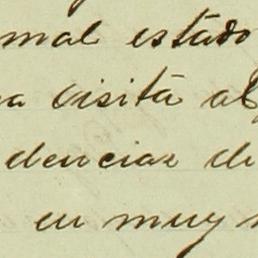 mal estado
a visita al
dencias de
en muy